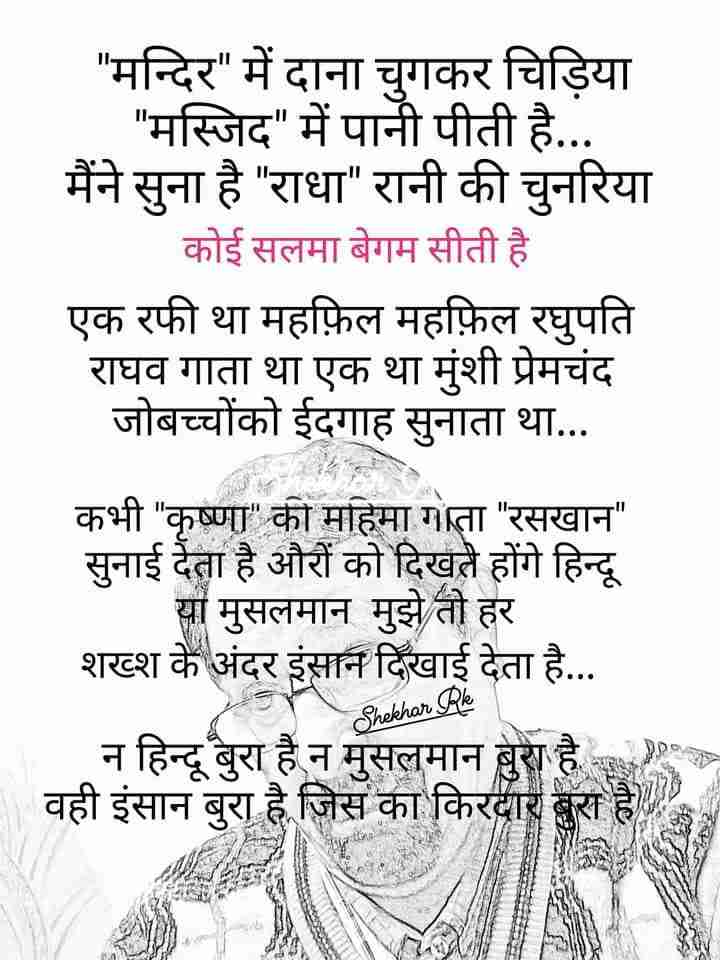 "मन्दिर" में दाना चुगकर चिड़िया
"मस्जिद" में पानी पीती है...
मैंने सुना है "राधा" रानी की चुनरिया
कोई सलमा बेगम सीती है
एक रफी था महफ़िल महफ़िल रघुपति
राघव गाता था एक था मुंशी प्रेमचंद
जोबच्चोंको ईदगाह सुनाता था...
कभी "कृष्णा" की महिमा गाता "रसखान"
सुनाई देता है औरों को दिखते होंगे हिन्दू
या मुसलमान मुझे तो हर
शख्श के अंदर इंसान दिखाई देता है...
Shekhar Rk
न हिन्दू बुरा है न मुसलमान बुरा है
वही इंसान बुरा है जिस का किरदार बुरा है